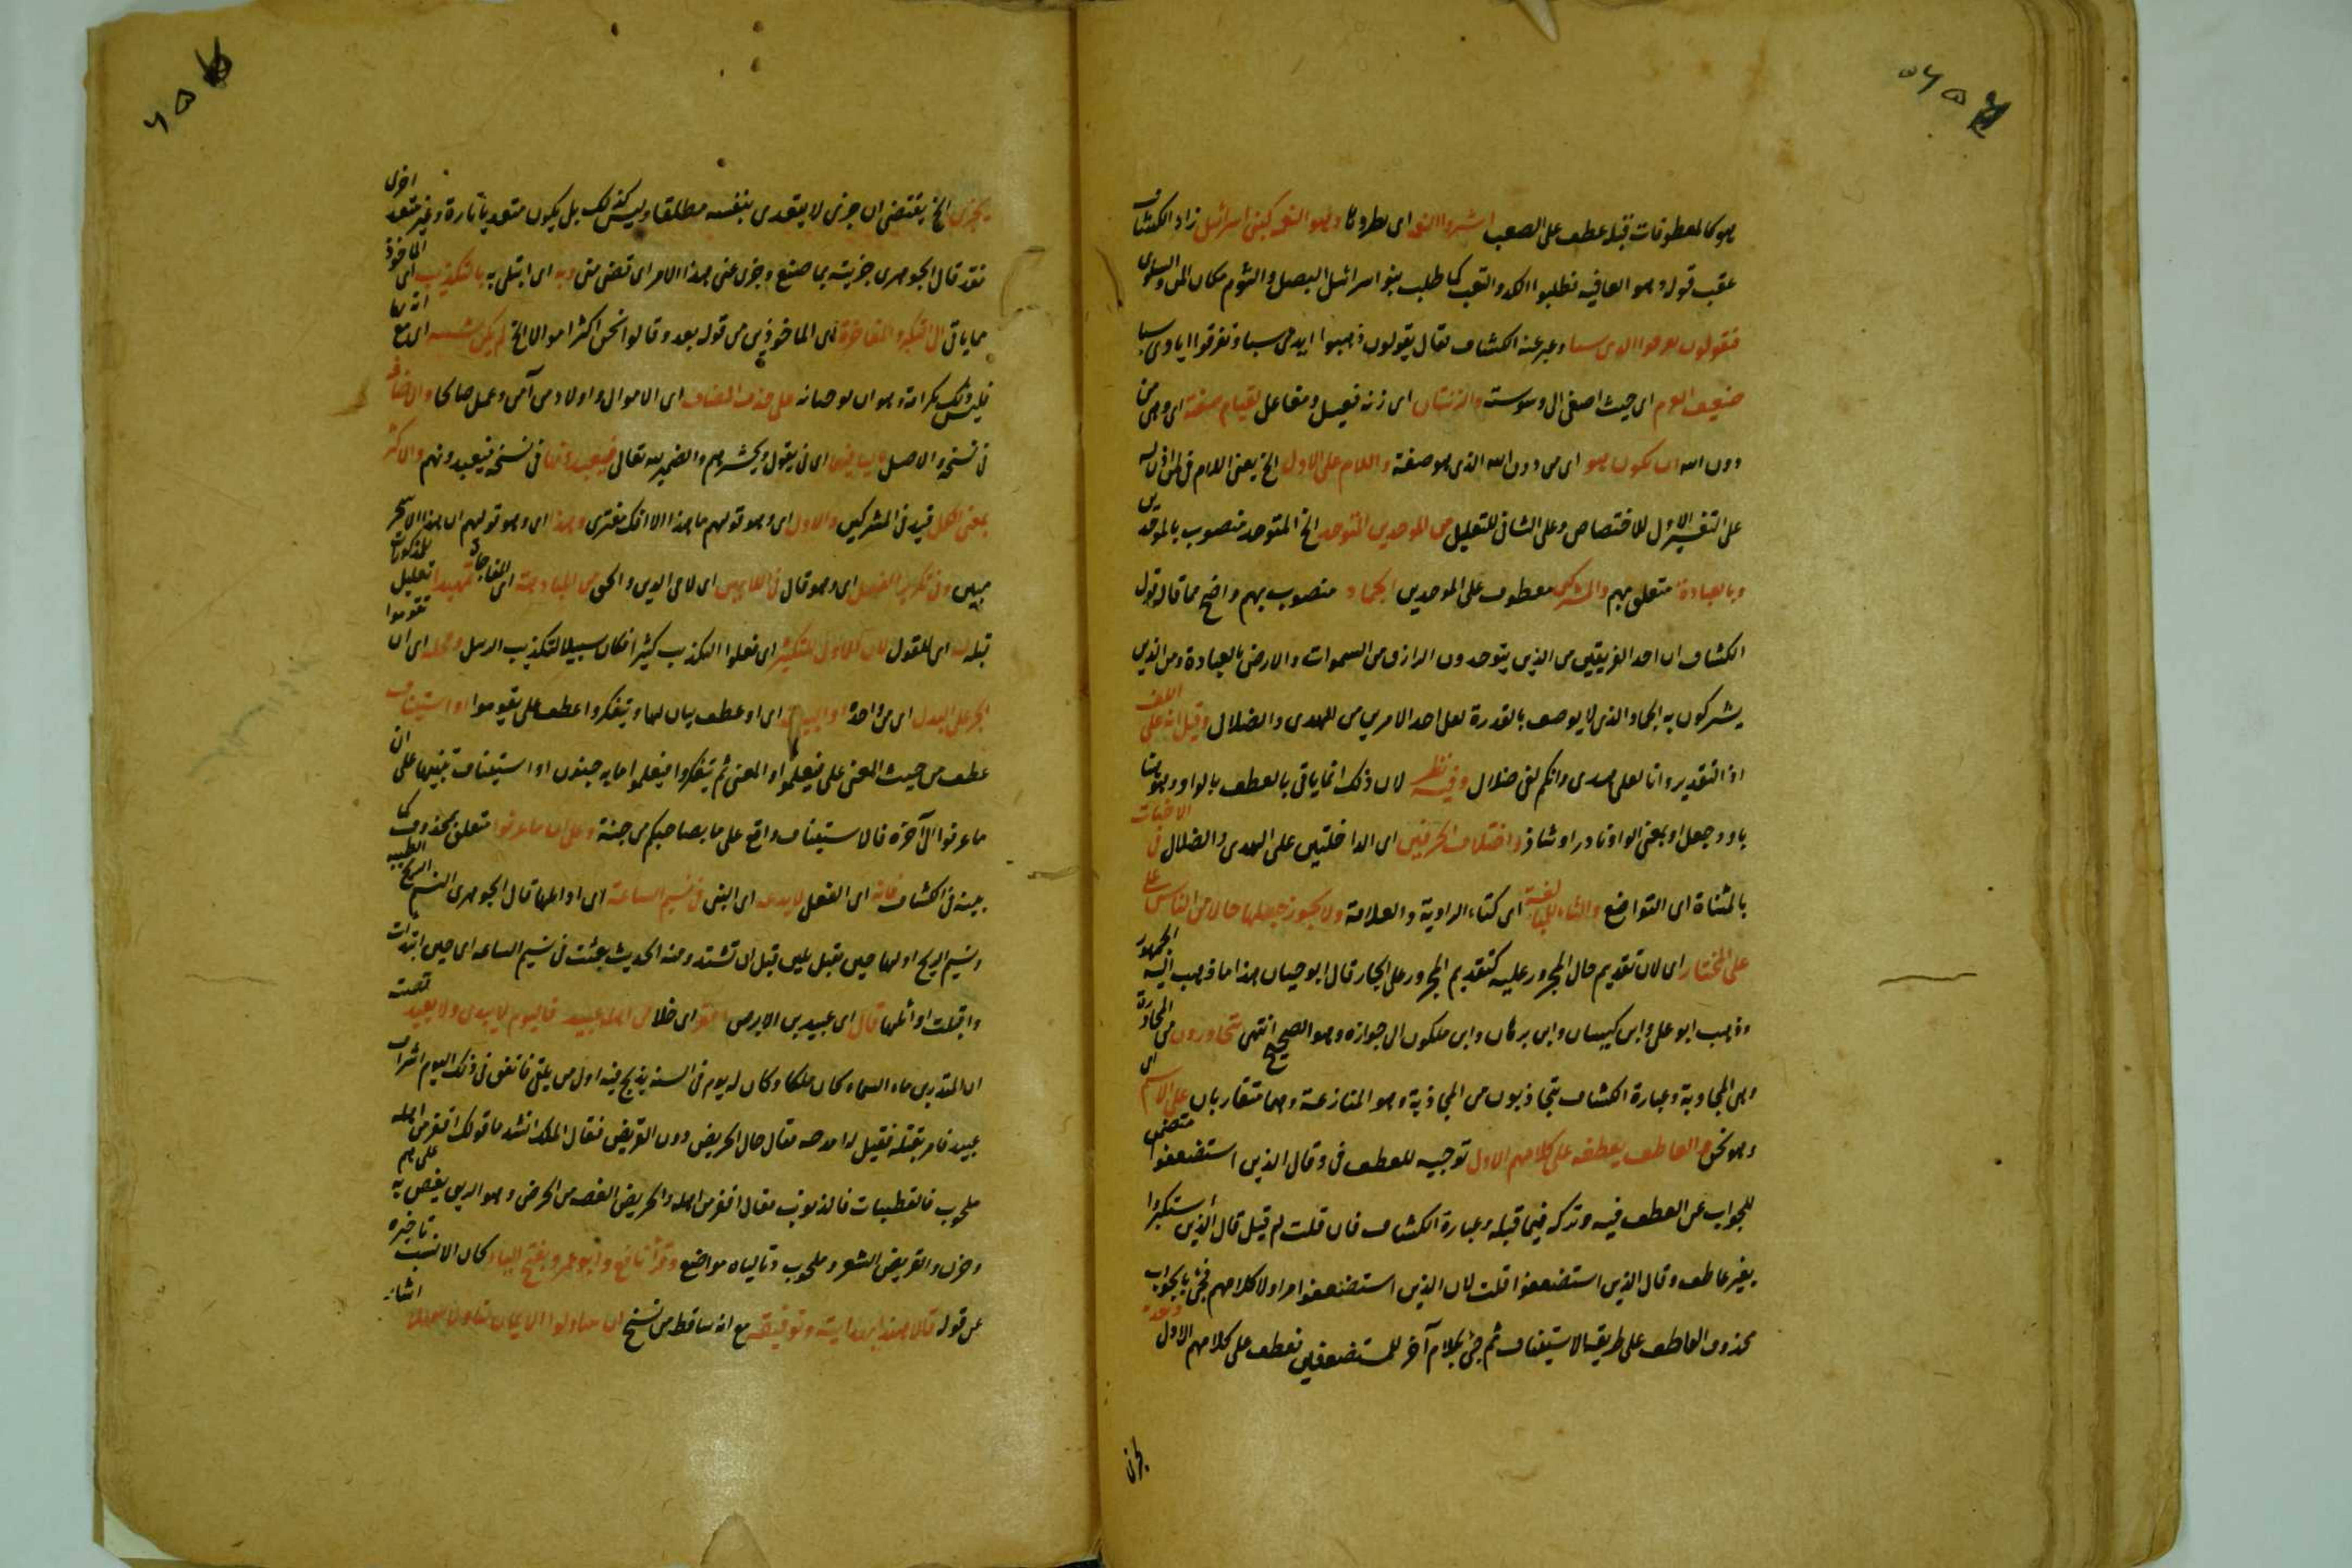 هو كالمعطوفات قبله عطف على الصعب اى بطروها وهو النعمة كبنى اسرائيل زاد الكشاف
عقب قوله وهو العافيه فطلبوا الكد والتعب كما طلب بنو اسرائيل البصل والثوم مكان المن والسلوى
فيقولون تفرقوا ايدى سبا وعبر عنه الكشاف فقال يقولون ذهبوا ايدى سبا وتفرقوا ايادى سبا
اى حيث اصغى الى وسوسته والزنتان اى زنة فعيل ومفاعل لقيام صفته اى وهى من
دون الله ان يكون هو اى من دون الله الذى هو صفته واللام على الاول الخ يعنى اللام فى لمن اذن له
على التفسير الاول للاختصاص وعلى الثانى للتعليل من الموحدين المتوحد الخ المتوحد منصوب بالموحدين
وبالعبادة متعلق بهم والمشركين معطوف على الموحدين الجماد منصوب بهم واضح مما قاله قول
الكشاف ان احد الفريقين من الذين يتوحدون الرازق من السموات والارض بالعبادة ومن الذين
يشركون به الجماد الذى لا يوصف بالقدرة لعلى احد الامرين من الهدى والضلال وقيل انه على اللف
اذ التقدير وانا لعلى هدى وانكم لفى ضلال وفيه نظر لان ذلك انما ياتى بالعطف بالواو وهو هنا
باو وجعل او بمعنى الواو نادر او شاذ واختلاف الحرفين اى الداخلتين على الهدى والضلال فى الاخبات
بالمثناة اى التواضع والتاء للمبالغة اى كتاء الراوية والعلامة ولا يجوز جعلها حالا من الناس على
على المختار اى لان تقديم حال المجرور عليه كتقديم المجرور على الجار قال ابو حيان هذا ما ذهب اليه الجمهور
وذهب ابو على وابن كيسان وابن برهان وابن ملكون الى جوازه وهو الصحيح انتهى تتحاورون من المحاورة
وهى المجاوبة وعبارة الكشاف يتجاذبون من المجاذبة وهو المنازعة وهما متقاربان على الاسم اى
وهو نحن العاطف يعطفه على كلامهم الاول توجيه للعطف فى وقال الذين استضعفوا متضمن
للجواب عن العطف فيه وتركه فيما قبله وعبارة الكشاف فان قلت لم قيل قال الذين استكبروا
بغير عاطف وقال الذين استضعفوا قلت لان الذين استضعفوا مر اولا كلامهم فجئ بالجواب
محذوف العاطف على طريقة الاستيناف ثم جئ بكلام آخر للمستضعفين فعطف على كلامهم الاول
يجزى الخ يقتضى ان جزى لا يتعدى بنفسه مطلقا وليس كذلك بل يكون متعديا تارة وغير متعد اخرى
فقد قال الجوهرى جزيته بما صنع وجزى عنى هذا الامر اى قضى اى ابتلى به بالتكذيب اى الماخوذ
مما ياتى الى التكبر والمفاخرة اى الماخوذين من قوله بعد وقالوا نحن اكثر اموالا الخ لم يكن اى مع انه
فليس ذلك بكرامة على حذف المضاف اى الاموال واولاد من آمن وعمل صالحا والاضافة
فى نسخة والاصل اى فى يقول ويحشرهم والضمير لله تعالى فيعبدونها فى نسخة فيعبدونهم والاكثر
بمعنى الكل قيد فى المشركين والاول اى وهو قولهم ما هذا الا افك مفترى وهذا اى وهو قولهم ان هذا الا سحر
مبين وفى تكرير الفعل اى وهو قال فى اللامين اى لامى الذين والحق من المبادهة اى المفاجاة تمهيدا تعليل للمذكورات
قبله اى للقول لان الاول للتكثير اى فعلوا التكذيب كثيرا فكان سببا لتكذيب الرسل ومحله اى ان تقوموا
الجر على البدل اى من واحدة او البيان اى او عطف بيان لها وتتفكروا عطف على تقوموا او استيناف
عطف من حيث المعنى على فيعلموا او المعنى ثم تتفكروا فيعلموا ما به جنون او استيناف تنبيها على ان
ما عرفوا الى آخره فالاستيناف واقع على ما بصاحبكم من جنة متعلق بمحذوف كما
بينه فى الكشاف فانه اى الفعل اى النبى فى نسيم الساعة اى اوائلها قال الجوهرى النسم الريح الطيبة
ونسيم الريح اولها حين تقبل بلين قبل ان تشتد ومنه الحديث بعثت فى نسيم الساعة اى حين ابتدات
واقبلت اوائلها قال اى عبيد بن الابرص اقفر اى خلا من اهله عبيد فاليوم لا يبدى ولا يعيد قصته
ان المنذر بن ماء السماء كان ملكا وكان له يوم فى السنة يذبح فيه اول من يلقى فاتفق فى ذلك اليوم اشراف
عبيد فامر بقتله فقيل له امدحه فقال حال الجريض دون القريض فقال الملك انشد ما قولك اقفر من اهله
ملحوب فالقطبيات فالذنوب فقال اقفر من اهله والجريض الغصة من الجرض وهو الريق يغص به على هم
وحزن والقريض الشعر وملحوب وتالياه مواضع وقرأ نافع وابو عمرو بفتح الياء كان الانسب تاخيره
عن قوله قالا بهدايته وتوفيقه مع انه ساقط من نسخ